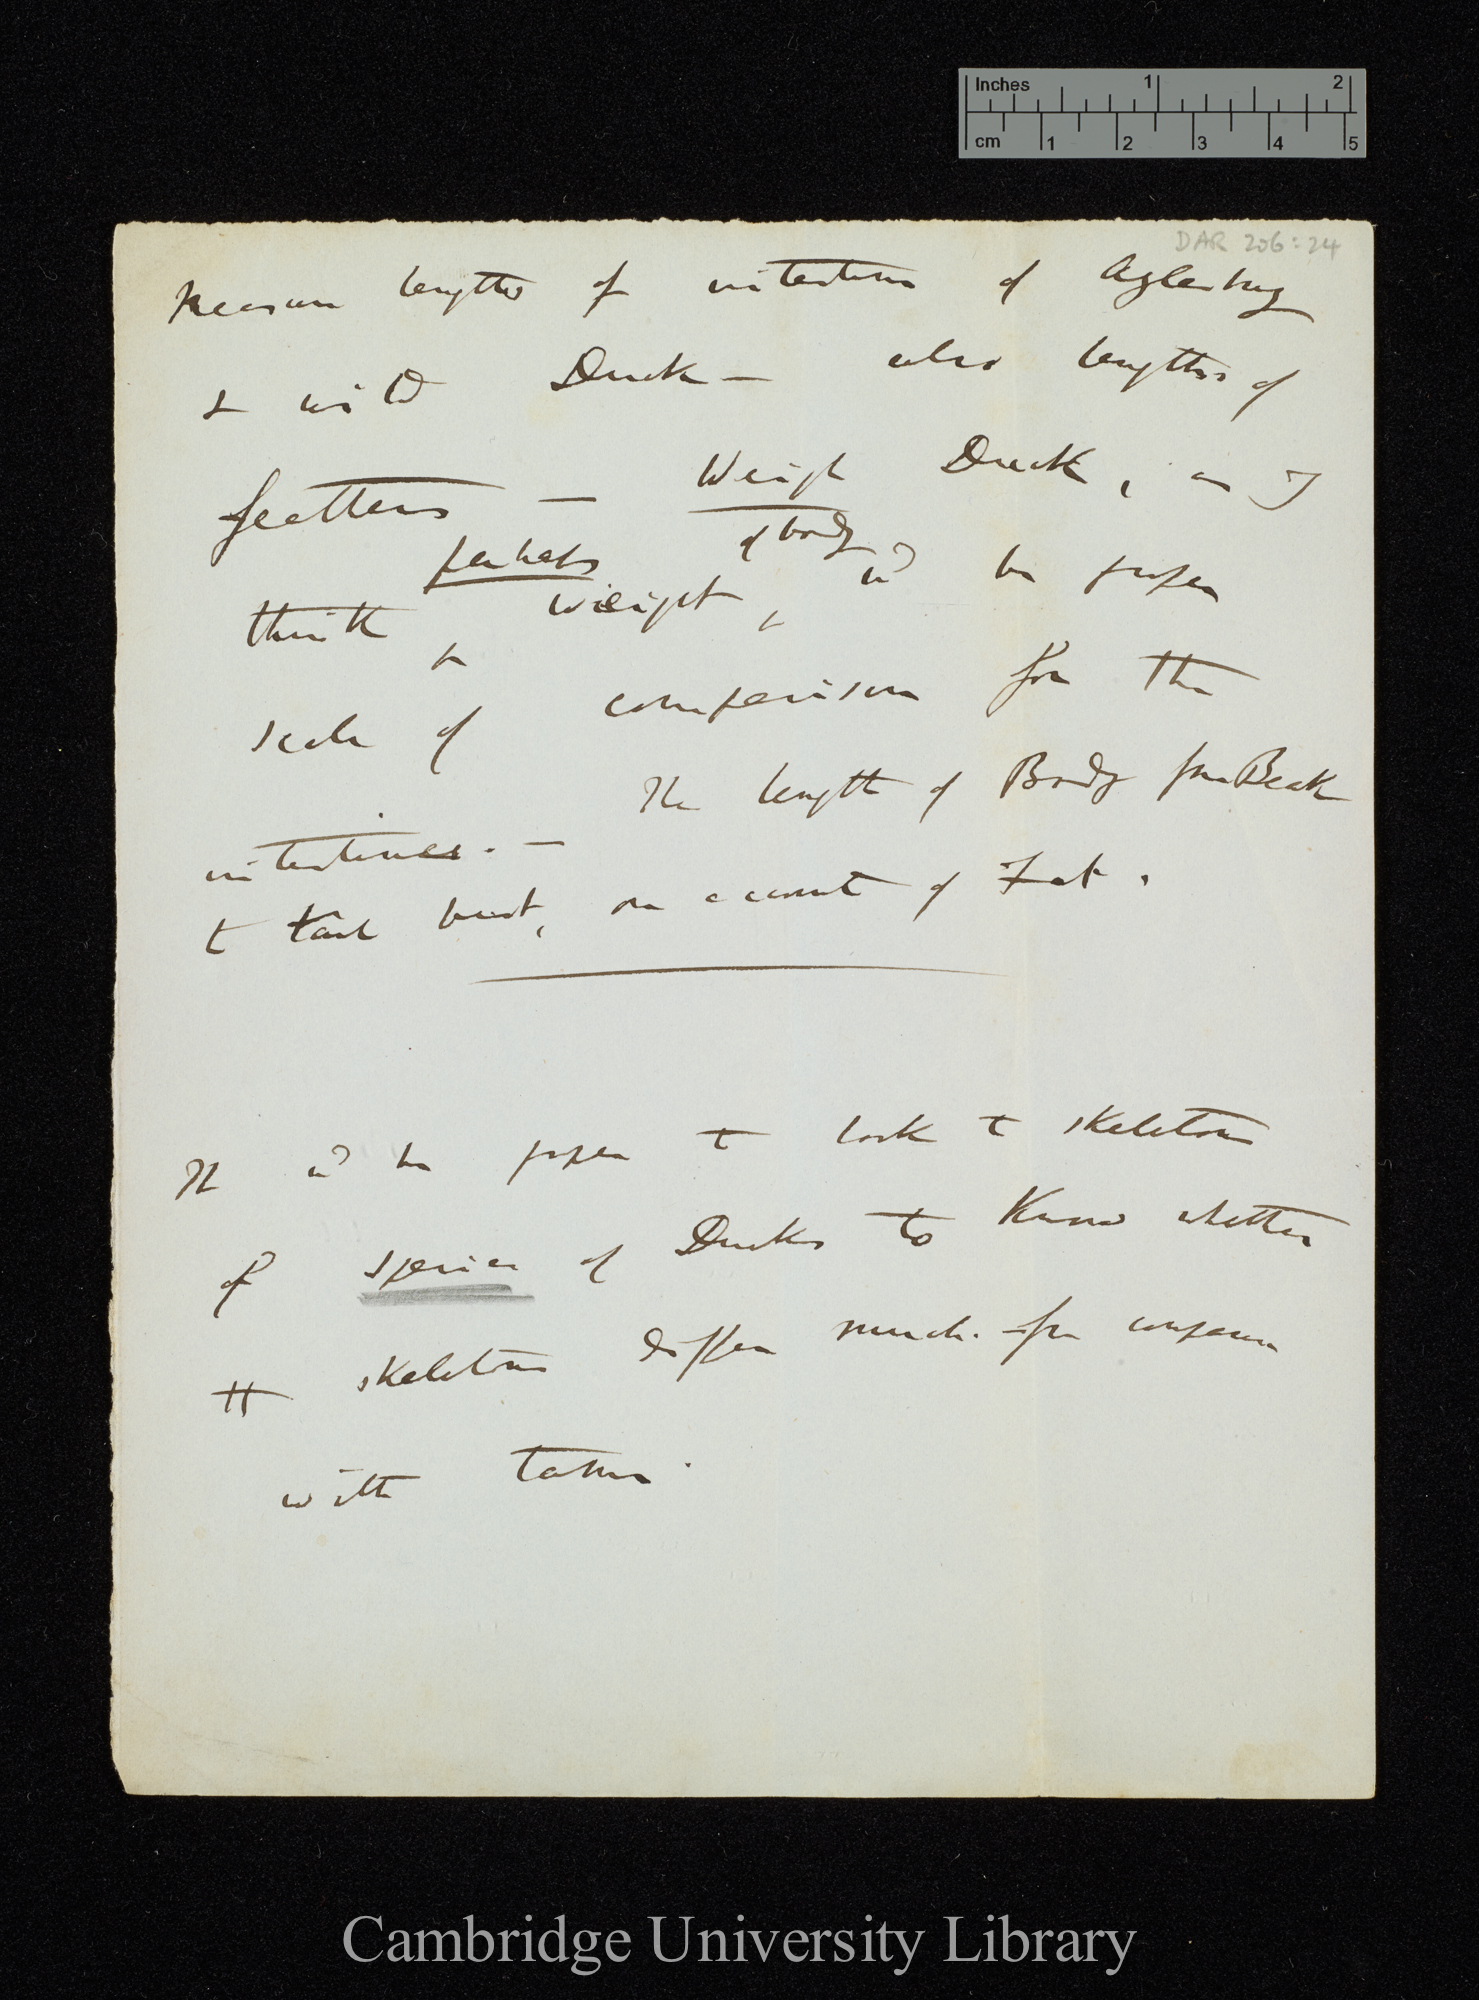 Inches 1 2
cm 1 2 3 4 5
DAR 206:24
Measure lengths of intestines of Aylesbury
& wild Duck — also lengths of
feathers — Weigh Duck, as I
perhaps of body
think ^ weight, wd be proper
scale of comparison for the
intestines. — The length of Body from Beak
to tail best, on account of Fat.
It wd be proper to look to skeletons
of species of Ducks to know whether
skeletons differ much. for comparison
with tame.
Cambridge University Library